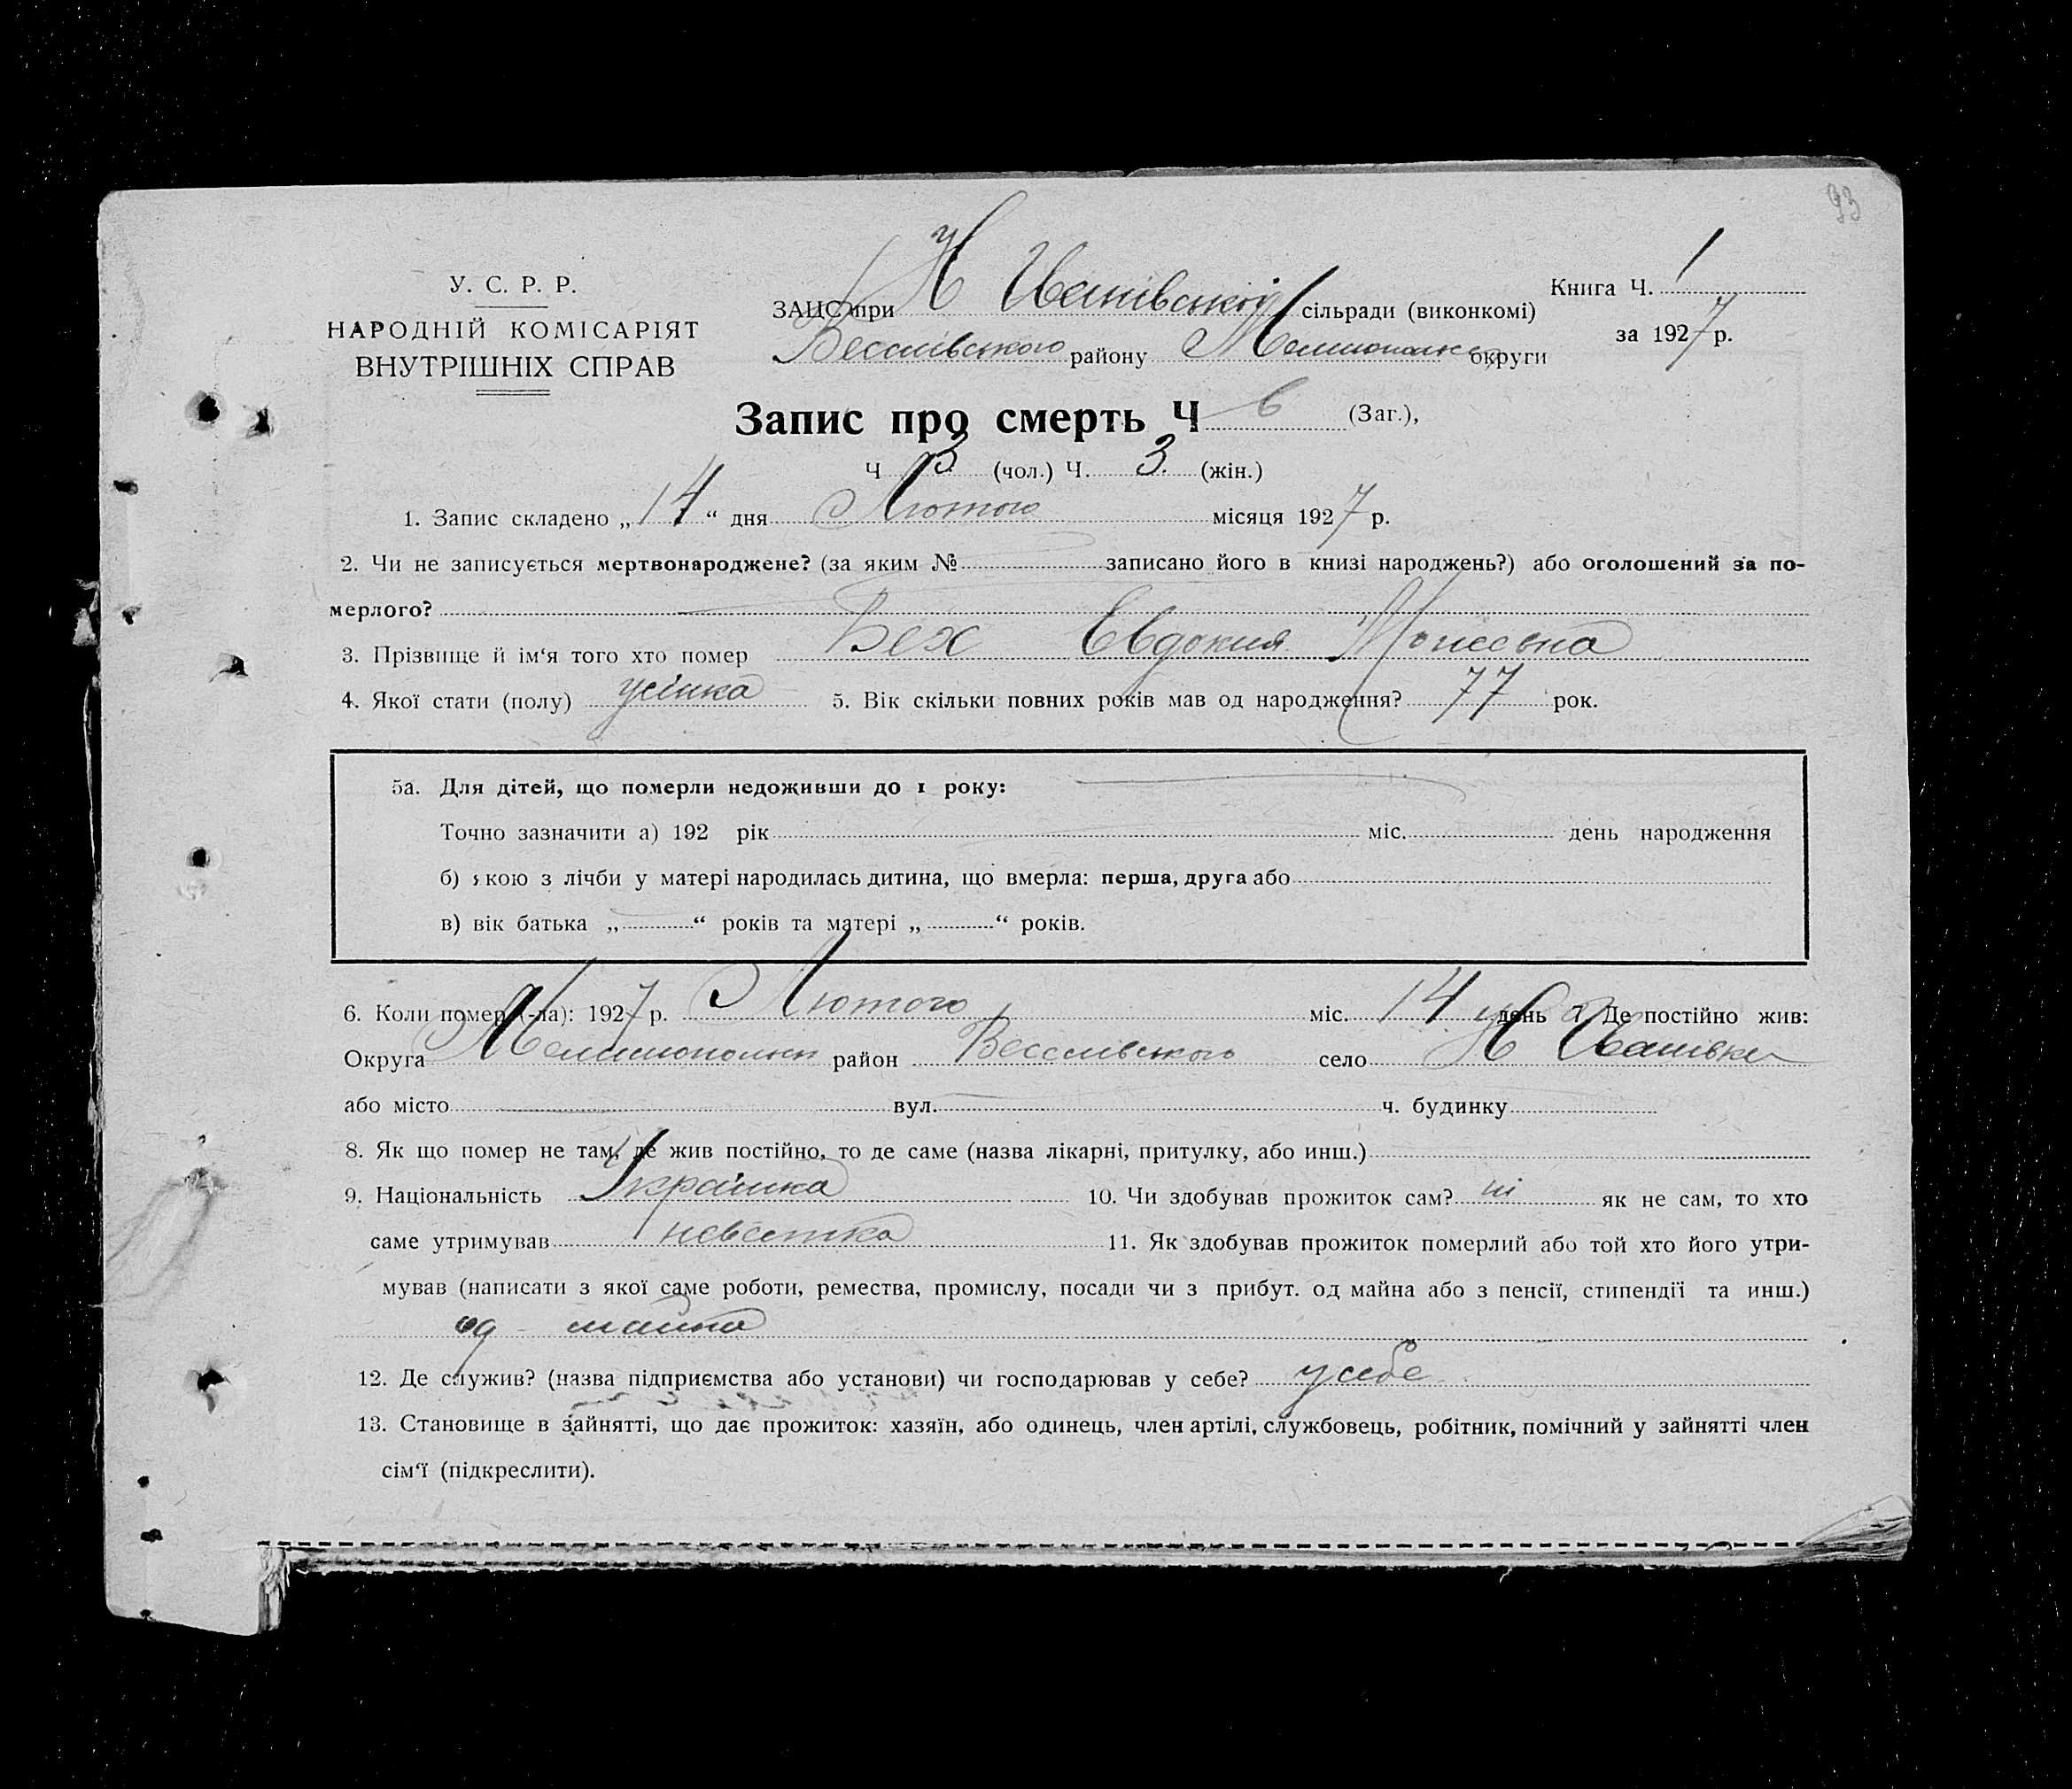 93
У. С. Р. Р.
НАРОДНІЙ КОМІСАРІЯТ
ВНУТРІШНІХ СПРАВ
ЗАЦС при Н Іванівській сільради (виконкомі)
Веселівського району Мелітопольск округи
Книга Ч. 1
за 1927 р.
Запис про смерть Ч 6 (Заг.),
Ч 3 (чол.) Ч. 3. (жін.)
1. Запис складено „14“ дня Лютого місяця 1927 р.
2. Чи не записується мертвонароджене? (за яким № записано його в книзі народжень?) або оголошений за по-
мерлого?
3. Прізвище й ім‘я того хто помер Бех Евдокия Моисеевна
4. Якої стати (полу) жінка 5. Вік скільки повних років мав од народження? 77 рок.
5а. Для дітей, що померли недоживши до 1 року:
Точно зазначити а) 192 рік міс. день народження
б) якою з лічби у матері народилась дитина, що вмерла: перша, друга або
в) вік батька „ “ років та матері „ “ років.
6. Коли помер (-ла): 1927 р. Лютого міс. 14 день 7. Де постійно жив:
Округа Мелітопольск район Веселівського село Н Іванівка
або місто вул. ч. будинку
8. Як що помер не там, де жив постійно, то де саме (назва лікарні, притулку, або инш.)
9. Національність Українка 10. Чи здобував прожиток сам? ні як не сам, то хто
саме утримував невістка 11. Як здобував прожиток померлий або той хто його утри-
мував (написати з якої саме роботи, ремества, промислу, посади чи з прибут. од майна або з пенсії, стипендії та инш.)
од майна
12. Де служив? (назва підприємства або установи) чи господарював у себе? у себе
13. Становище в зайнятті, що дає прожиток: хазяїн, або одинець, член артілі, службовець, робітник, помічний у зайнятті член
сім‘ї (підкреслити).